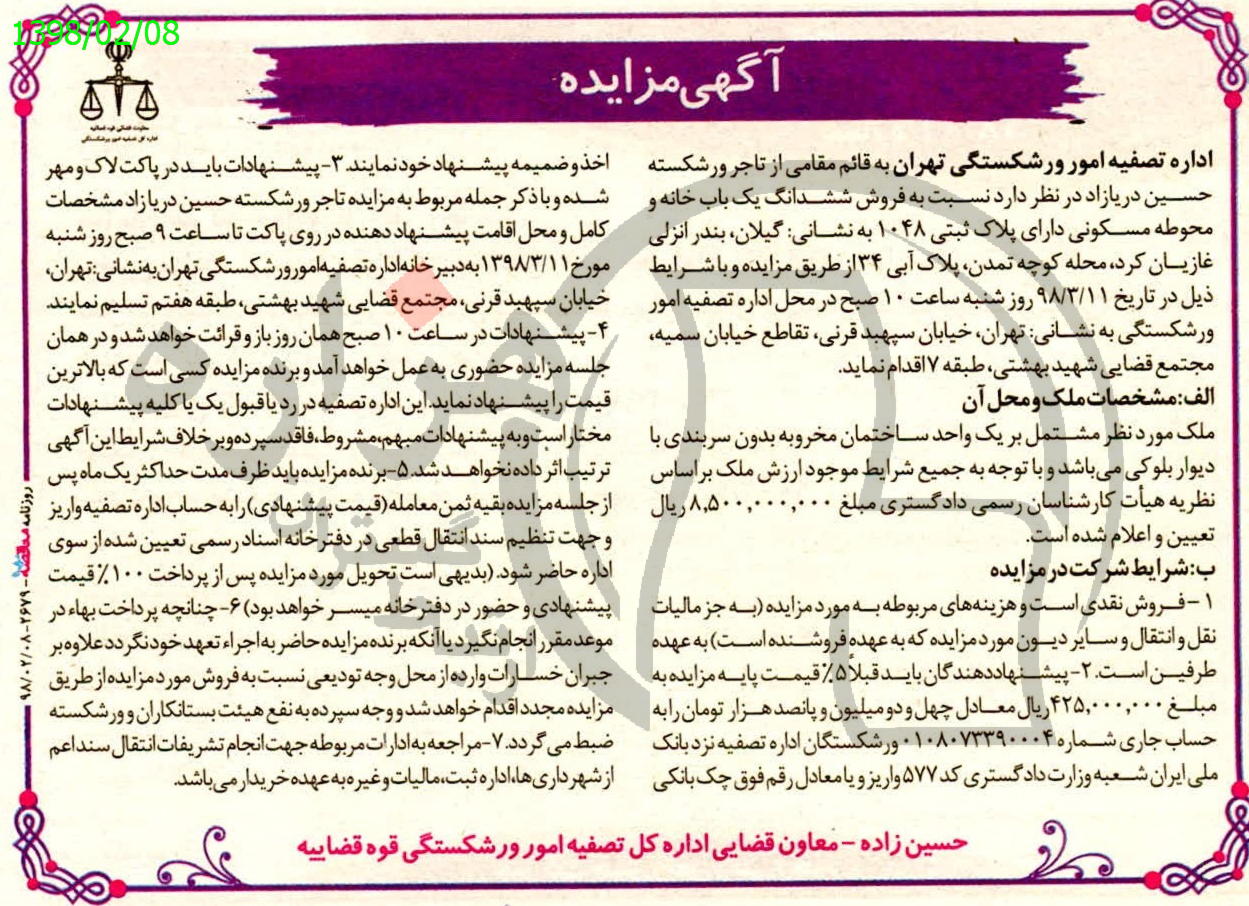 1398/02/08
آگهی مزایده
معاونت قضائی قوه قضائیه
اداره کل تصفیه امور ورشکستگی
اداره تصفیه امور ورشکستگی تهران به قائم مقامی از تاجر ورشکسته
حسین دریازاد در نظر دارد نسبت به فروش ششدانگ یک باب خانه و
محوطه مسکونی دارای پلاک ثبتی ۱۰۴۸ به نشانی: گیلان، بندر انزلی
غازیان کرد، محله کوچه تمدن، پلاک آبی ۳۴ از طریق مزایده و با شرایط
ذیل در تاریخ ۹۸/۳/۱۱ روز شنبه ساعت ۱۰ صبح در محل اداره تصفیه امور
ورشکستگی به نشانی: تهران، خیابان سپهبد قرنی، تقاطع خیابان سمیه،
مجتمع قضایی شهید بهشتی، طبقه ۷ اقدام نماید.
الف: مشخصات ملک و محل آن
ملک مورد نظر مشتمل بر یک واحد ساختمان مخروبه بدون سربندی با
دیوار بلوکی می‌باشد و با توجه به جمیع شرایط موجود ارزش ملک بر اساس
نظریه هیأت کارشناسان رسمی دادگستری مبلغ ۸,۵۰۰,۰۰۰,۰۰۰ ریال
تعیین و اعلام شده است.
ب: شرایط شرکت در مزایده
۱- فروش نقدی است و هزینه‌های مربوطه به مورد مزایده (به جز مالیات
نقل و انتقال و سایر دیون مورد مزایده که به عهده فروشنده است) به عهده
طرفین است. ۲- پیشنهاددهندگان باید قبلا ۵٪ قیمت پایه مزایده به
مبلغ ۴۲۵,۰۰۰,۰۰۰ ریال معادل چهل و دو میلیون و پانصد هزار تومان را به
حساب جاری شماره ۰۱۰۸۰۷۳۳۹۰۰۰۴ ورشکستگان اداره تصفیه نزد بانک
ملی ایران شعبه وزارت دادگستری کد ۵۷۷ واریز و یا معادل رقم فوق چک بانکی
اخذ و ضمیمه پیشنهاد خود نمایند. ۳- پیشنهادات باید در پاکت لاک و مهر
شده و با ذکر جمله مربوط به مزایده تاجر ورشکسته حسین دریازاد مشخصات
کامل و محل اقامت پیشنهاد دهنده در روی پاکت تا ساعت ۹ صبح روز شنبه
مورخ ۱۳۹۸/۳/۱۱ به دبیرخانه اداره تصفیه امور ورشکستگی تهران به نشانی: تهران،
خیابان سپهبد قرنی، مجتمع قضایی شهید بهشتی، طبقه هفتم تسلیم نمایند.
۴- پیشنهادات در ساعت ۱۰ صبح همان روز باز و قرائت خواهد شد و در همان
جلسه مزایده حضوری به عمل خواهد آمد و برنده مزایده کسی است که بالاترین
قیمت را پیشنهاد نماید. این اداره تصفیه در رد یا قبول یک یا کلیه پیشنهادات
مختار است و به پیشنهادات مبهم، مشروط، فاقد سپرده و بر خلاف شرایط این آگهی
ترتیب اثر داده نخواهد شد. ۵- برنده مزایده باید ظرف مدت حداکثر یک ماه پس
از جلسه مزایده بقیه ثمن معامله (قیمت پیشنهادی) را به حساب اداره تصفیه واریز
و جهت تنظیم سند انتقال قطعی در دفترخانه اسناد رسمی تعیین شده از سوی
اداره حاضر شود. (بدیهی است تحویل مورد مزایده پس از پرداخت ۱۰۰٪ قیمت
پیشنهادی و حضور در دفترخانه میسر خواهد بود) ۶- چنانچه پرداخت بهاء در
موعد مقرر انجام نگیرد یا آنکه برنده مزایده حاضر به اجراء تعهد خود نگردد علاوه بر
جبران خسارات وارده از محل وجه تودیعی نسبت به فروش مورد مزایده از طریق
مزایده مجدد اقدام خواهد شد و وجه سپرده به نفع هیئت بستانکاران و ورشکسته
ضبط می گردد. ۷- مراجعه به ادارات مربوطه جهت انجام تشریفات انتقال سند اعم
از شهرداری‌ها، اداره ثبت، مالیات و غیره به عهده خریدار می باشد.
حسین زاده - معاون قضایی اداره کل تصفیه امور ورشکستگی قوه قضاییه
روزنامه مناقصه - ۲۶۷۹ - ۹۸/۰۲/۰۸
هزاره